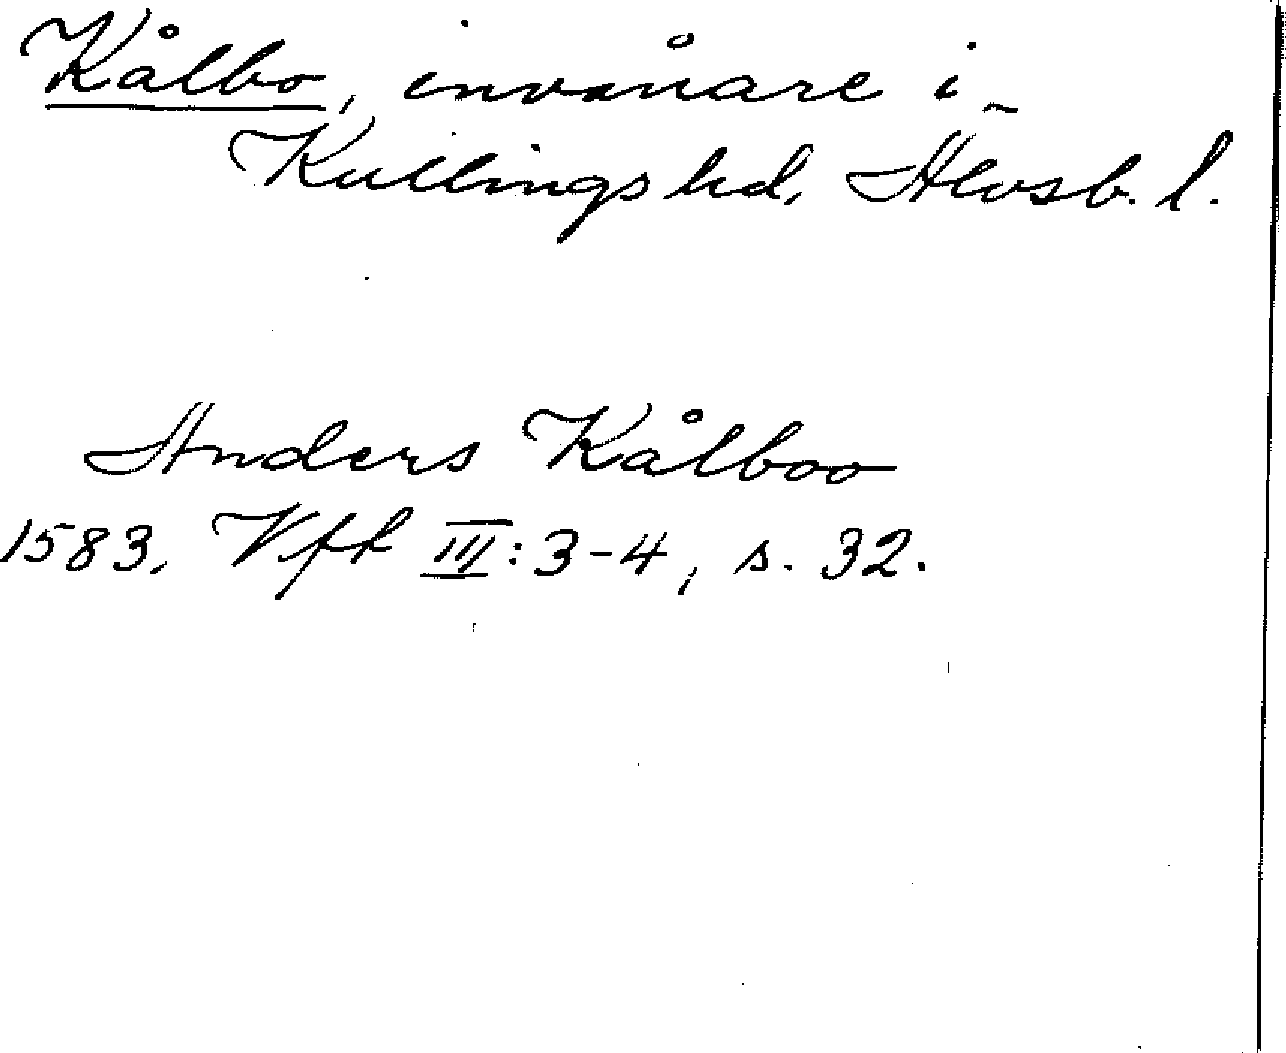 Kålbo, invånare i
Kullings hd, Älvsb. l.
Anders Kålboo
1583. Vfk III: 3-4, s. 32.